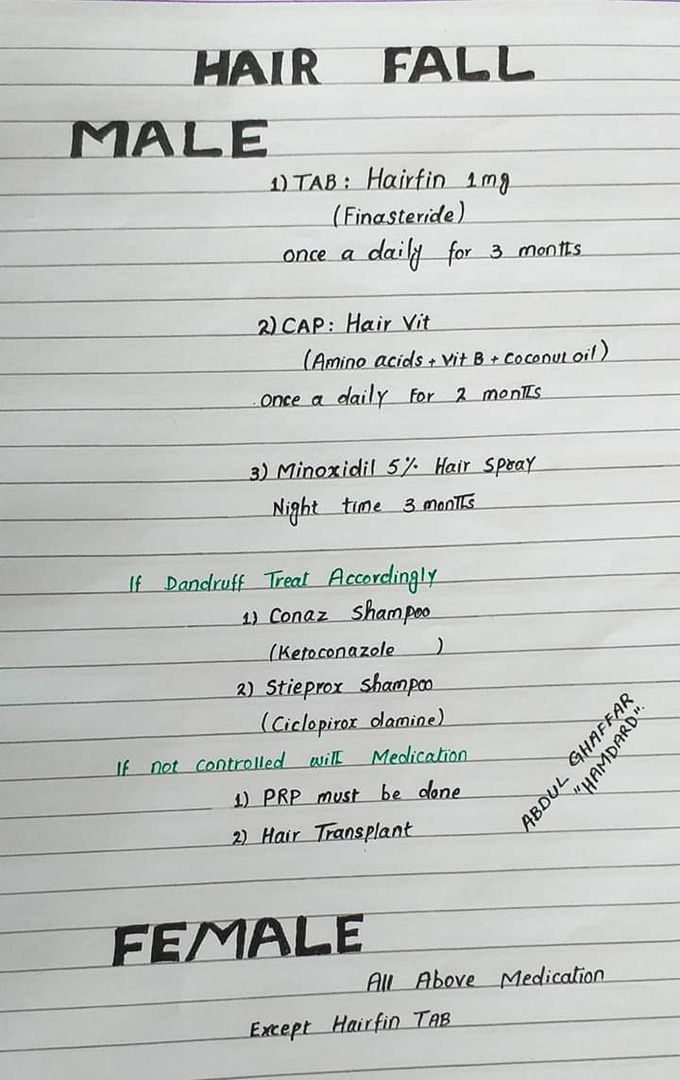 HAIR FALL
MALE
1) TAB: Hairfin 1mg
(Finasteride)
once a daily for 3 months
2) CAP: Hair Vit
(Amino acids + Vit B + Coconut oil)
once a daily For 2 months
3) Minoxidil 5% Hair Spray
Night time 3 months
If Dandruff Treat Accordingly
1) Conaz Shampoo
(Ketoconazole )
2) Stieprox Shampoo
(Ciclopirox olamine)
If not controlled with Medication
1) PRP must be done
2) Hair Transplant
ABDUL GHAFFAR
"HAMDARD".
FEMALE
All Above Medication
Except Hairfin TAB